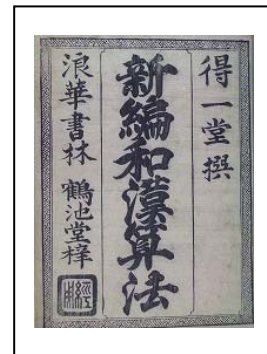 得一堂撰
新編和漢算法
浪華書林 鶴池堂梓